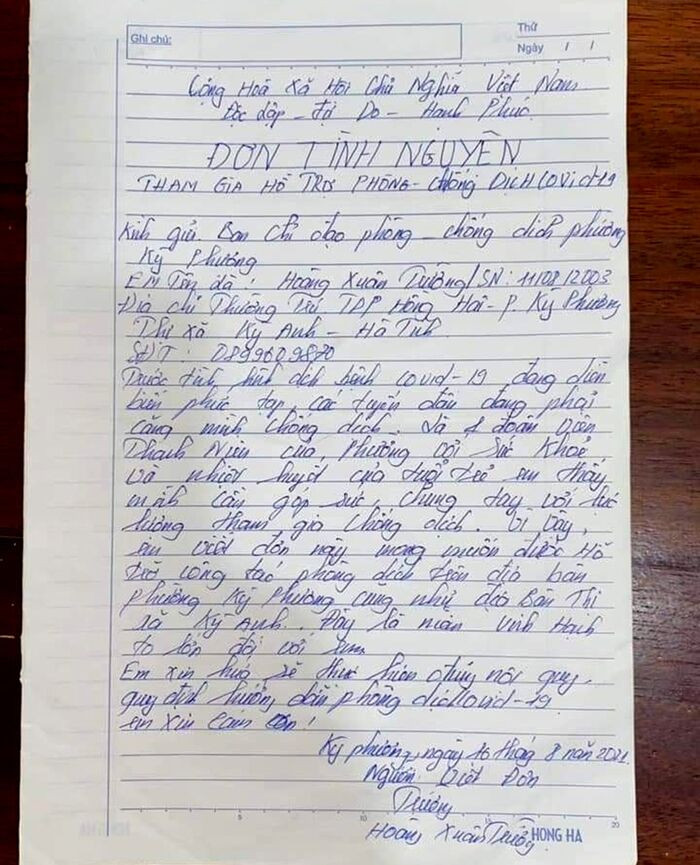 Ghi chú:
Thứ
Ngày / /
Cộng Hoà Xã Hội Chủ Nghĩa Việt Nam
Độc lập - Tự Do - Hạnh Phúc
ĐƠN TÌNH NGUYỆN
THAM GIA HỖ TRỢ PHÒNG - Chống DỊCH COVID-19
Kính gửi Ban chỉ đạo phòng - chống dịch phường
Kỳ Phương
Em Tên là : Hoàng Xuân Trường / SN : 11/08/2003
Địa chỉ Thường Trú TDP Hồng Hải - P. Kỳ Phương
Thị xã Kỳ Anh - Hà Tĩnh
SĐT : 0899609870
Trước tình hình dịch bệnh covid-19 đang diễn
biến phức tạp, các tuyến đầu đang phải
căng mình chống dịch. Là 1 đoàn viên
Thanh Niên của Phường với sức khoẻ,
và nhiệt huyết của tuổi trẻ em thấy
mình cần góp sức, chung tay với lực
lượng tham gia chống dịch. Vì vậy,
em viết đơn này mong muốn được Hỗ
trợ công tác phòng dịch trên địa bàn
phường Kỳ Phương cũng như địa Bàn Thị
xã Kỳ Anh. Đây là niềm vinh Hạnh
to lớn đối với em
Em xin hứa sẽ thực hiện đúng nội quy,
quy định hướng dẫn phòng dịch Covid-19
em xin cảm ơn !
Kỳ phương, ngày 16 tháng 8 năm 2021
Người Viết Đơn
Trường
Hoàng Xuân Trường
5 10 15 20
HONG HA